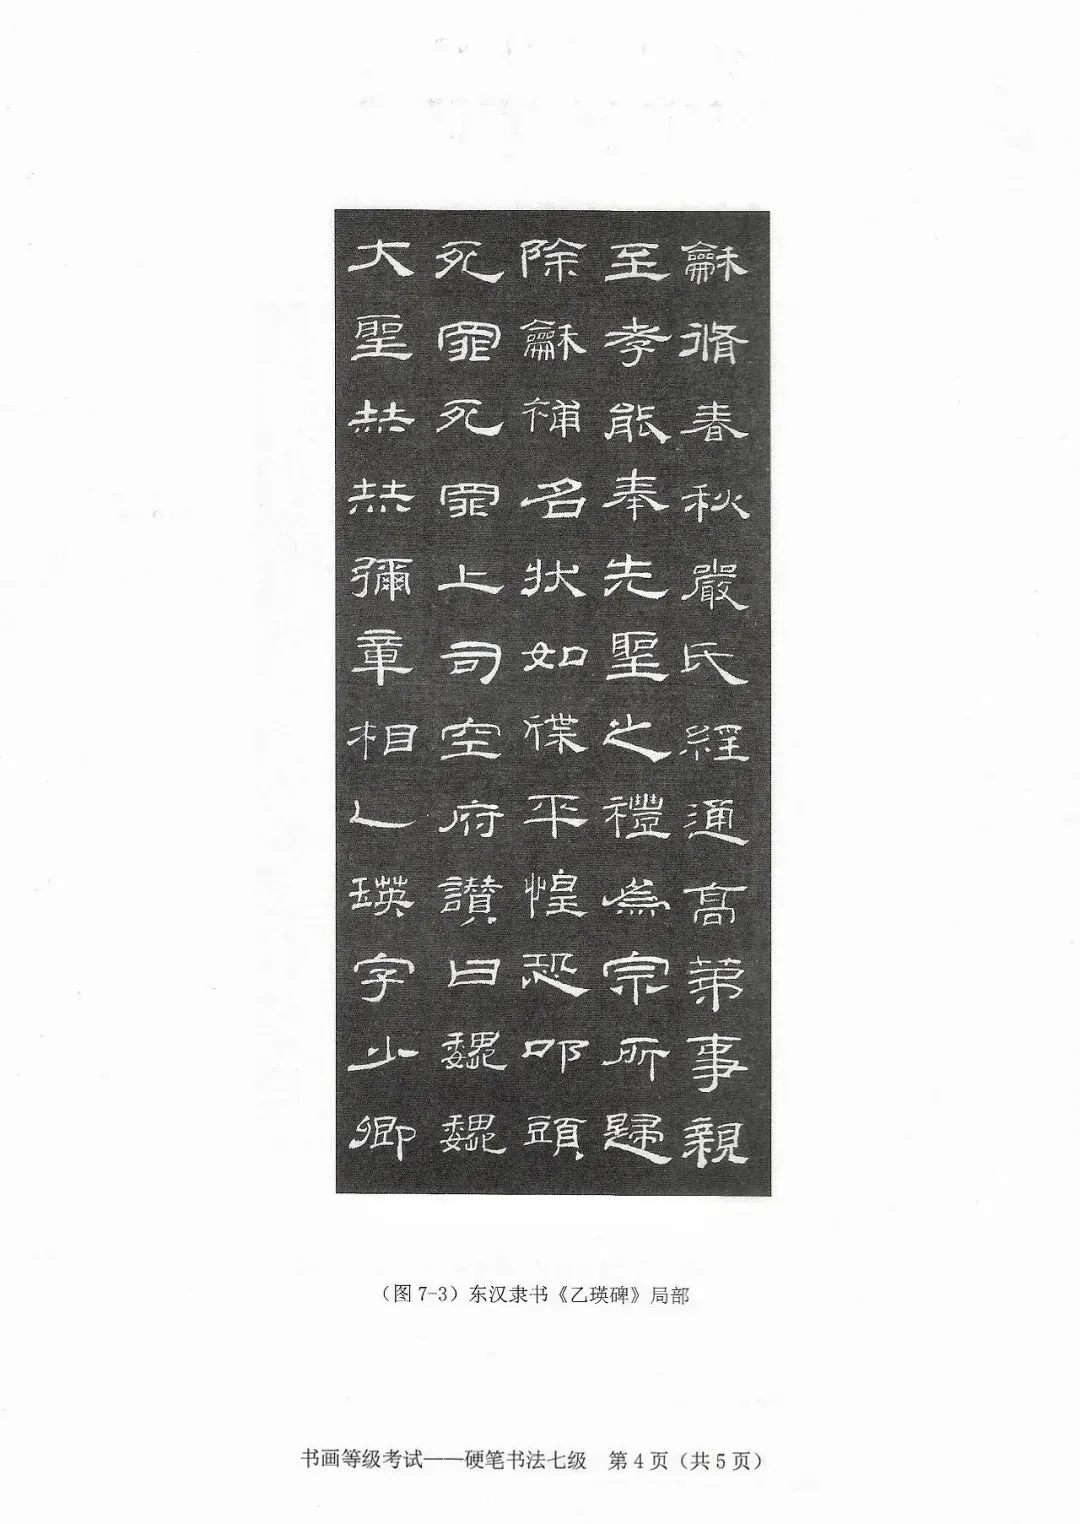 龢脩春秋嚴氏經通高第事親
至孝能奉先聖之禮為宗所歸
除龢補名狀如牒平惶恐叩頭
死罪死罪上司空府讚曰巍巍
大聖赫赫彌章相乙瑛字少卿
（图 7-3）东汉隶书《乙瑛碑》局部
书画等级考试——硬笔书法七级 第 4 页（共 5 页）